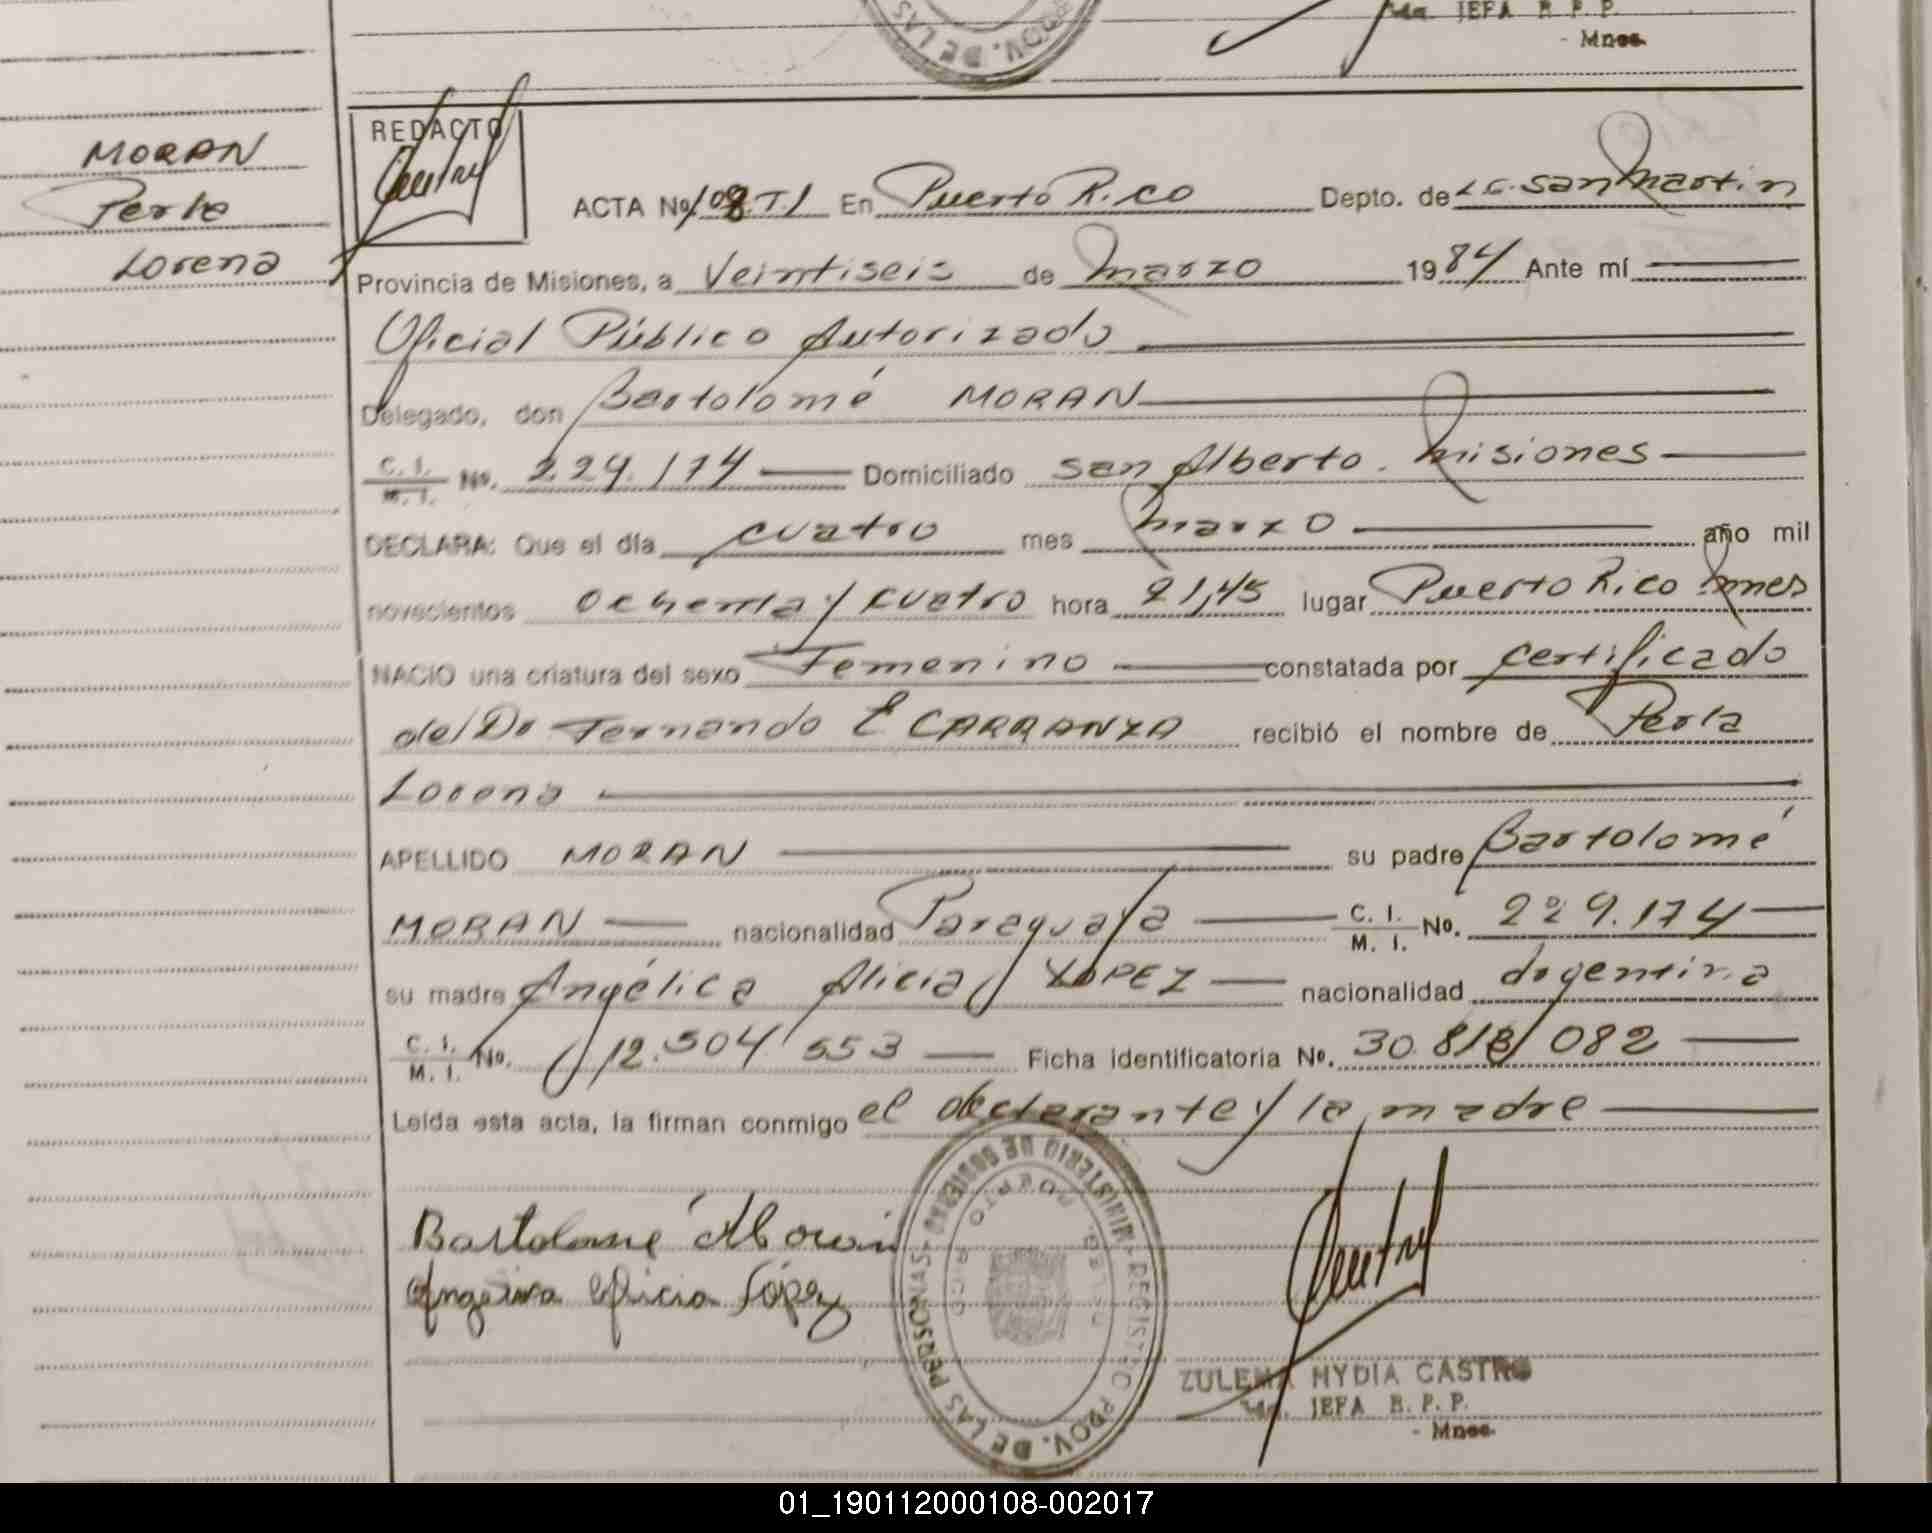 JEFA R. P. P.
- Mnes.
PROV. DE LAS
MORAN
Perla
Lorena
REDACTO
ACTA No. 108. T. I En Puerto Rico Depto. de L.G. San Martin
Provincia de Misiones, a Veintiseis de marzo 1984 Ante mí
Oficial Público Autorizado
Delegado, don Bartolomé MORAN
C. I.
M. I. No. 229.174 Domiciliado San Alberto. Misiones
DECLARA: Que el día cuatro mes marzo año mil
novecientos ochenta y cuatro hora 21,45 lugar Puerto Rico Mnes
NACIO una criatura del sexo Femenino constatada por certificado
del Dr Fernando E CARRANZA recibió el nombre de Perla
Lorena
APELLIDO MORAN su padre Bartolomé
MORAN nacionalidad Paraguaya C. I.
M. I. No. 229.174
su madre Angélica Alicia LOPEZ nacionalidad Argentina
C. I.
M. I. No. 12.504.553 Ficha identificatoria No. 30.818/082
Leída esta acta, la firman conmigo el declarante y la madre
Bartolomé Moran
Angelica Alicia López
MINISTERIO DE GOBIERNO - REGISTRO PROV. DE LAS PERSONAS -
DELEG. PUERTO RICO
ZULEMA NYDIA CASTRO
JEFA R. P. P.
- Mnes.
01_190112000108-002017